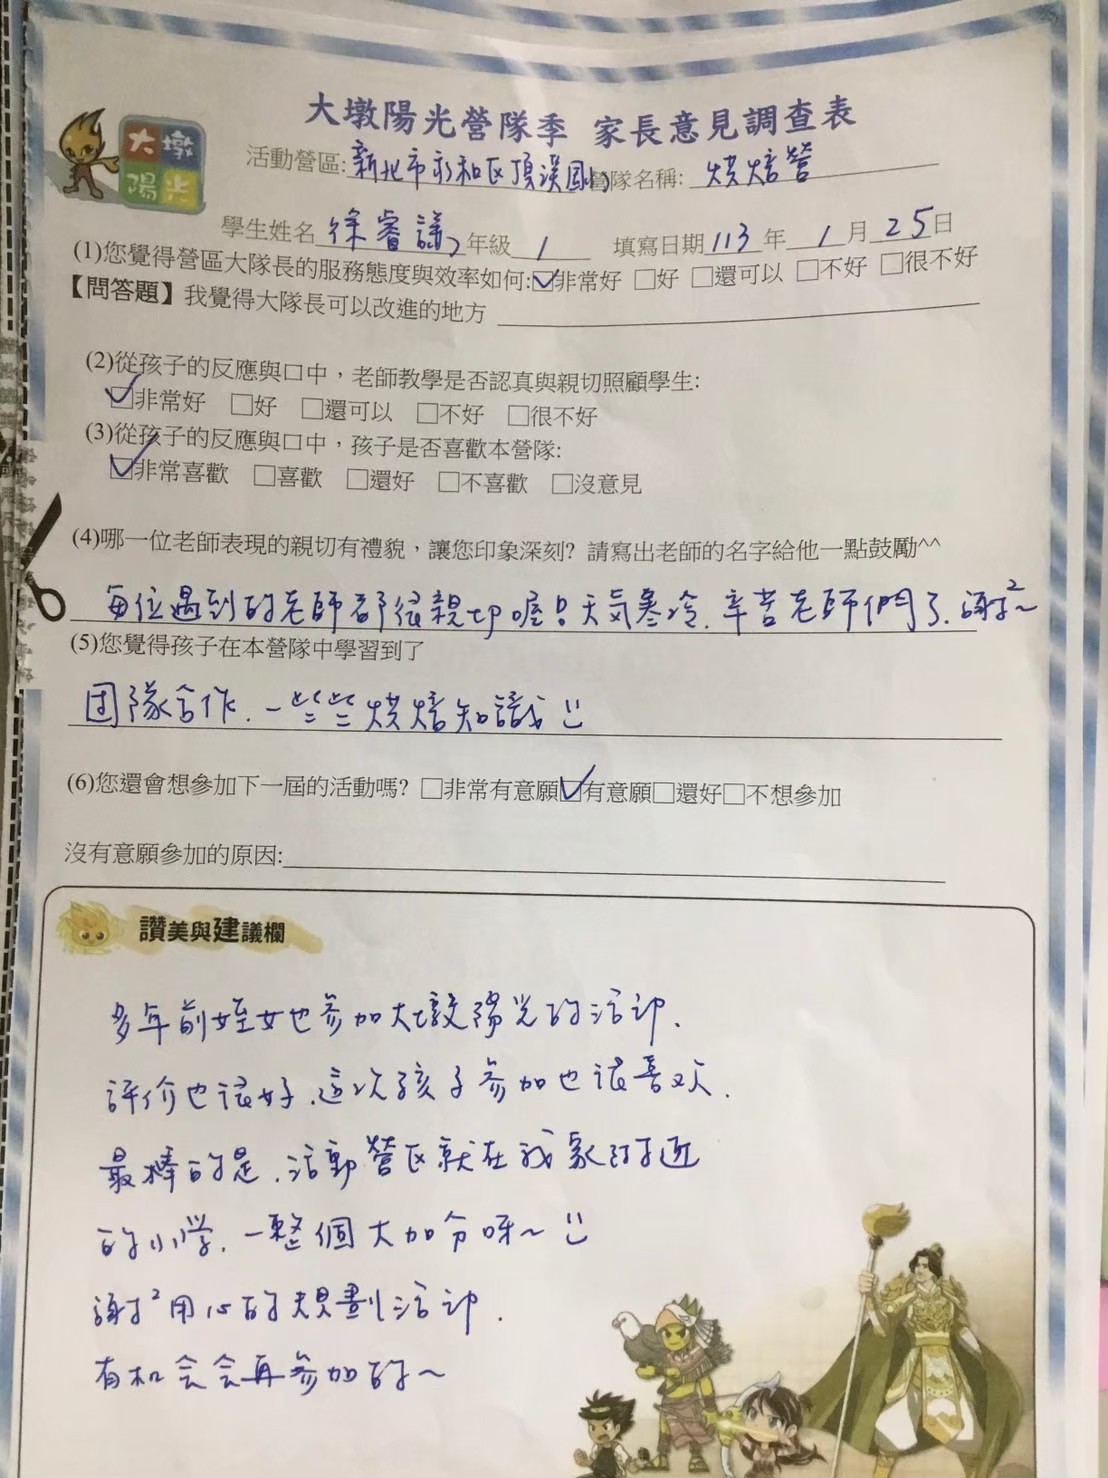 大墩陽光
大墩陽光營隊季 家長意見調查表
活動營區:新北市永和区頂溪國小 營隊名稱: 烘焙營
學生姓名 徐睿謙 年級 1 填寫日期 113 年 1 月 25 日
(1)您覺得營區大隊長的服務態度與效率如何:☑非常好 □好 □還可以 □不好 □很不好
【問答題】我覺得大隊長可以改進的地方
(2)從孩子的反應與口中，老師教學是否認真與親切照顧學生:
☑非常好 □好 □還可以 □不好 □很不好
(3)從孩子的反應與口中，孩子是否喜歡本營隊:
☑非常喜歡 □喜歡 □還好 □不喜歡 □沒意見
(4)哪一位老師表現的親切有禮貌，讓您印象深刻? 請寫出老師的名字給他一點鼓勵^^
每位遇到的老師都很親切喔!天氣寒冷.辛苦老師們了.謝²~
(5)您覺得孩子在本營隊中學習到了
团隊合作.一些些烘焙知識 ü
(6)您還會想參加下一屆的活動嗎? □非常有意願☑有意願□還好□不想參加
沒有意願參加的原因:
讚美與建議欄
多年前姪女也參加大墩陽光的活动.
評价也很好.這次孩子參加也很喜欢.
最棒的是.活動營区就在我家附近
的小学.一整個大加分呀~ ü
謝²用心的規劃活动.
有机会会再參加的~